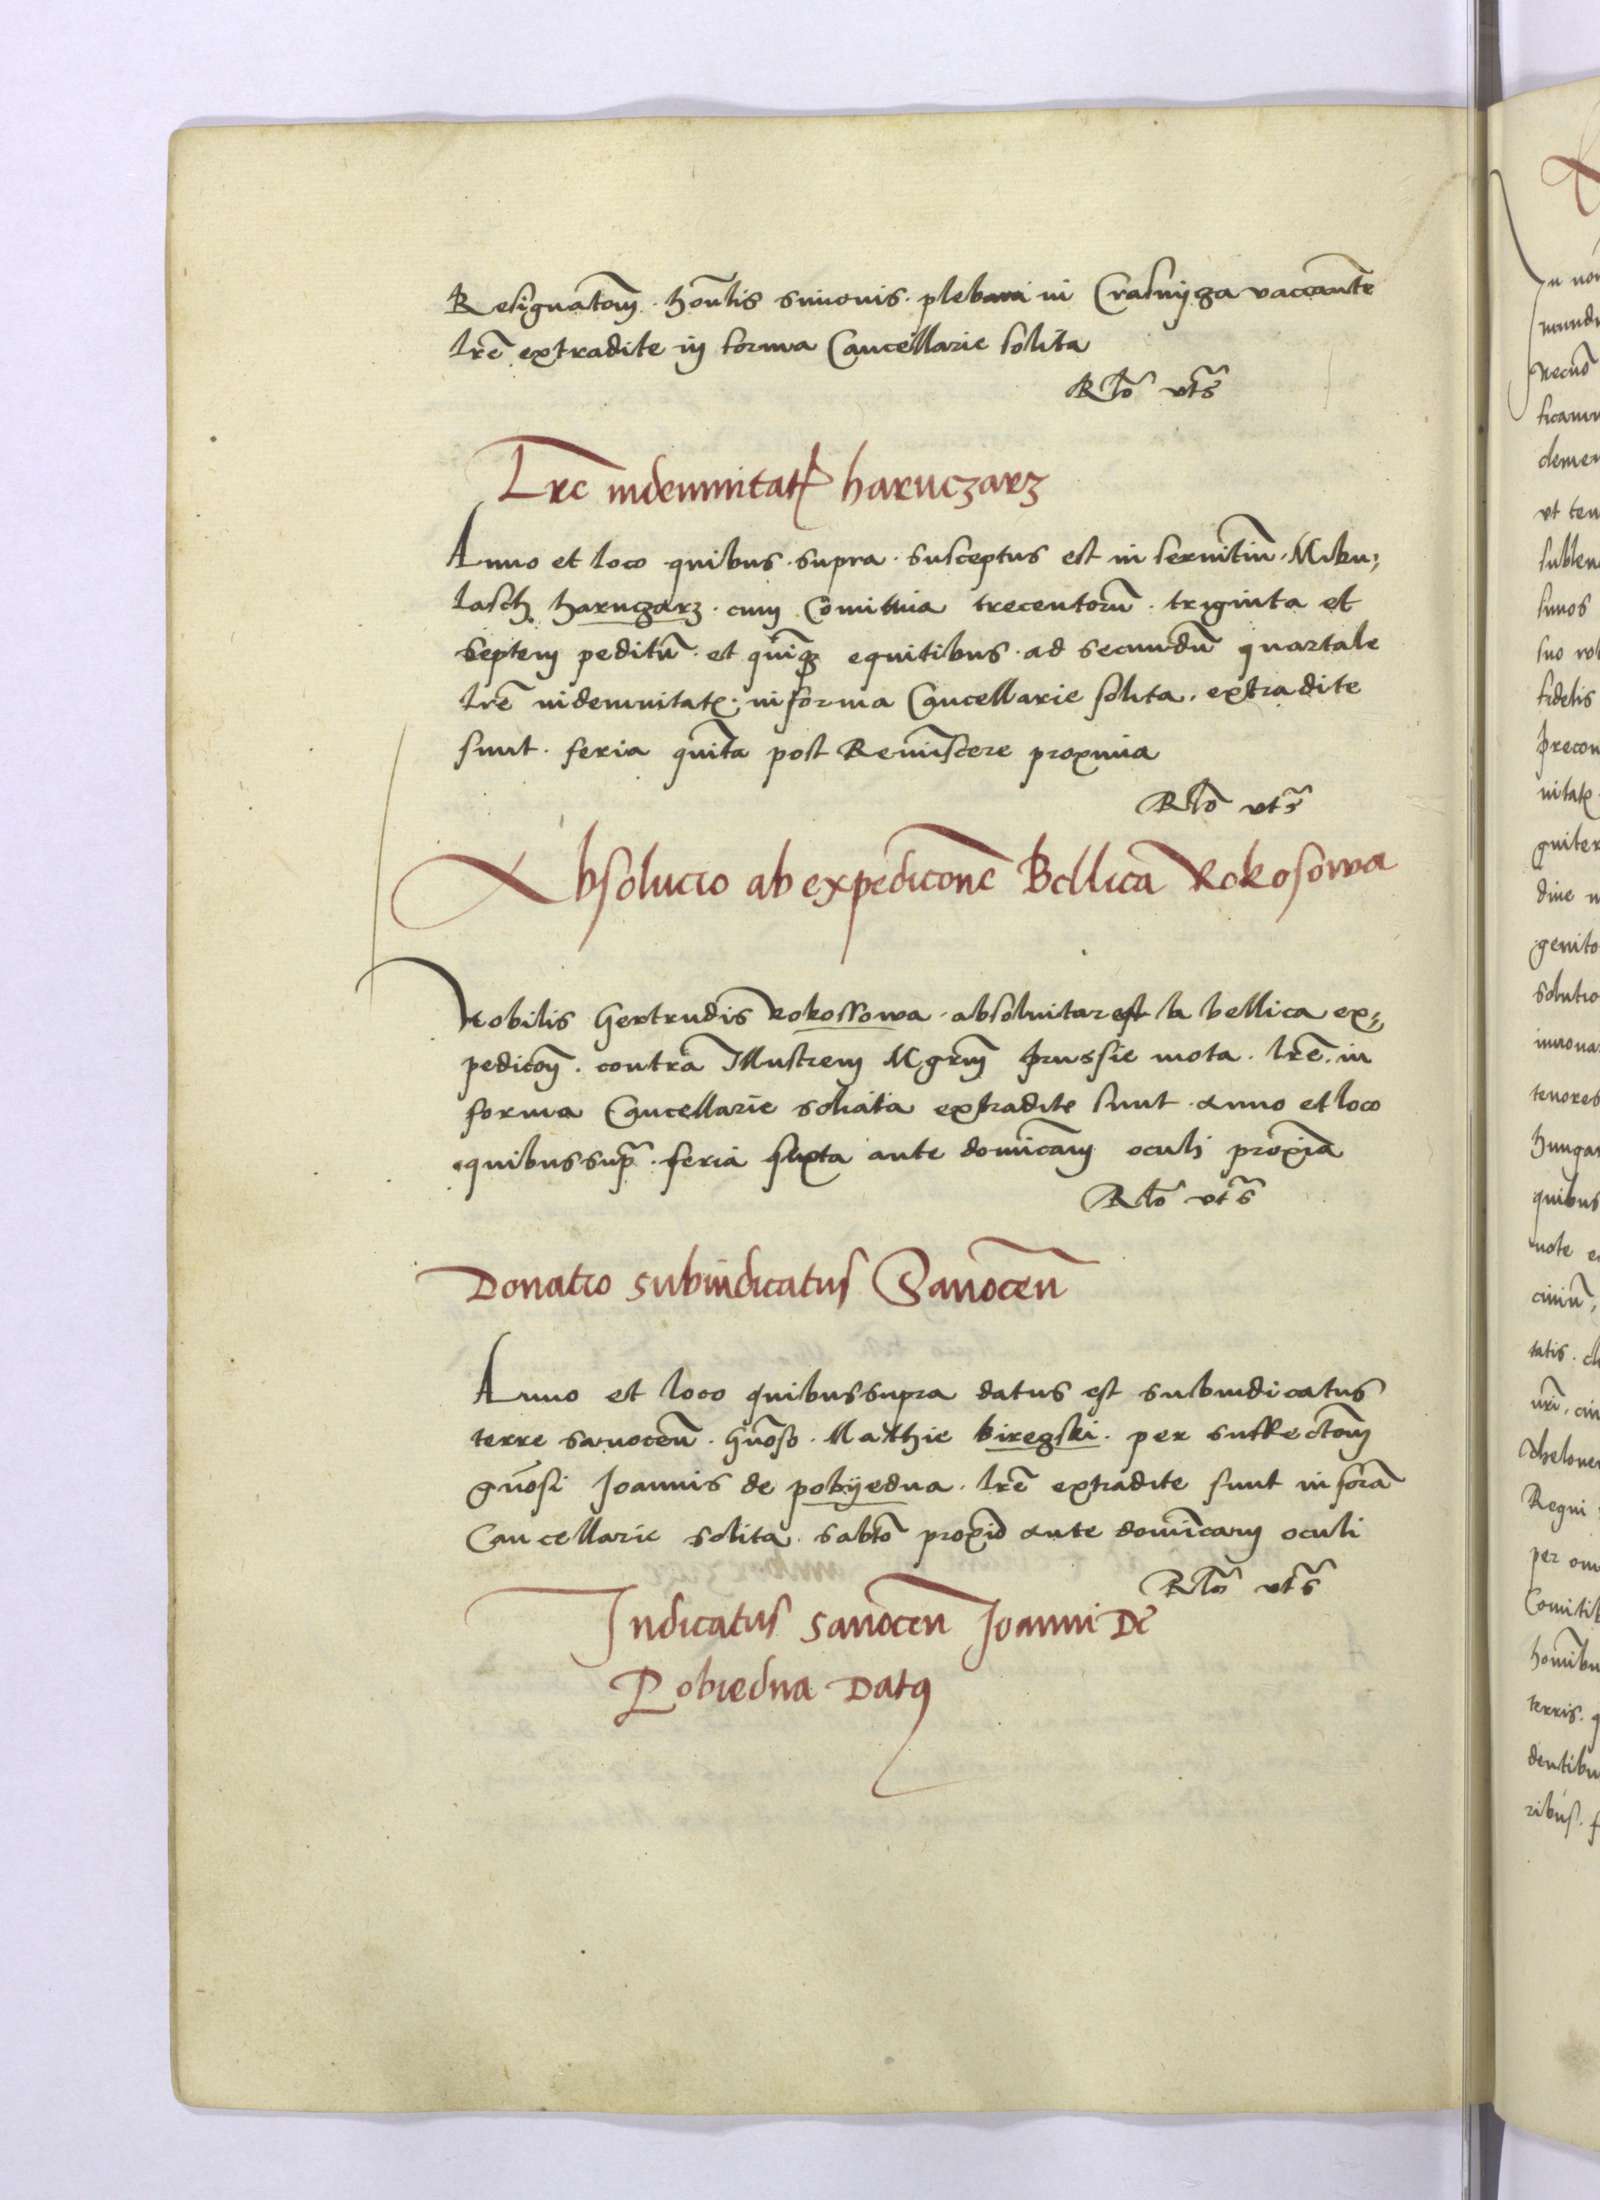 Resignatōm . honlis simonis . plebani in Crasnijga vaccante
lr̃e extradite in forma Cancellarie solita
Rlo vts
Lr̃e indemnitat haruczarz
Anno et loco quibus supra susceptus est in seruitiū Miku-
lasch haruczarz . cum Comitiua trecentorū . triginta et
septem peditū . et quinq equitibus . ad secundū quartale
lr̃e indemnitat . in forma Cancellarie solita . extradite
sunt . feria quinta post Reminiscere proxima
Rlo vts
Absolucio ab expedicone Bellica Rokosowa
Nobilis Gertrudis Rokossowa . absoluitar est a bellica ex-
pedicōm . contra Illustrem Mgrm̄ prussie mota . lr̃e . in
forma Cancellarie soliata extradite sunt . anno et loco
quibus sup . feria sexta ante domīcam oculi proxīa
Rlo vts
Donatio subiudicatus Sanocen̄
Anno et loco quibus supra datus est subiudicatus
terre sanocen̄ . Gn̄oso . Mathie biregski . per suffectōm
gn̄osi Joannis de pobyedna . lr̃e extradite sunt in forā
Cancellarie solita . sabto proxīo ante domīcam oculi
Rlo vts
Iudicatus sanocen̄ Joanni De
Pobiedna Datq